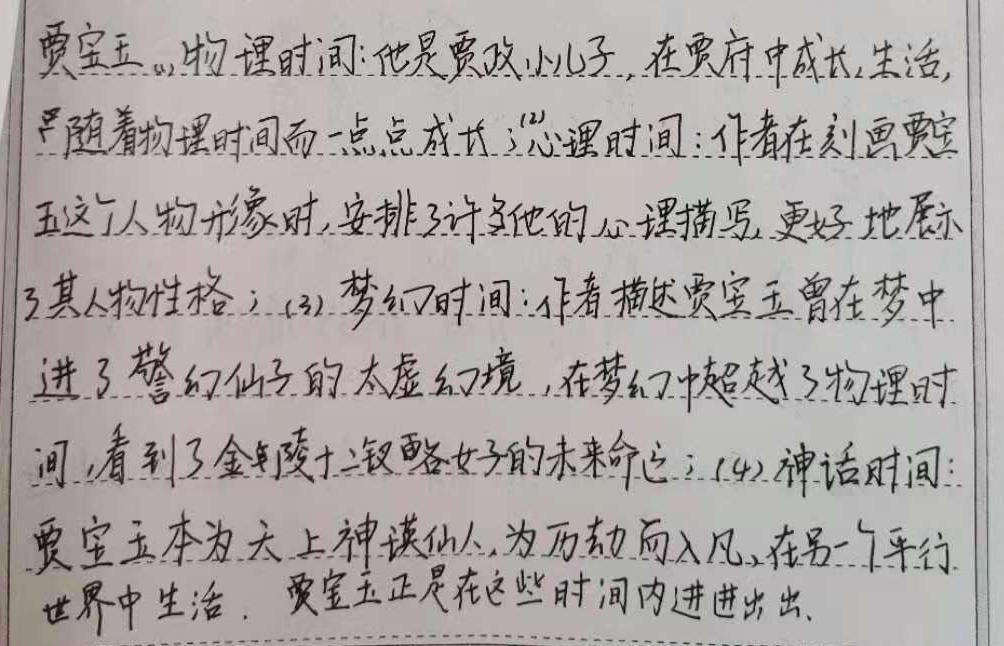 贾宝玉(1)物理时间:他是贾政小儿子,在贾府中成长,生活,
随着物理时间而一点点成长;(2)心理时间:作者在刻画贾宝
玉这个人物形象时,安排了许多他的心理描写,更好地展示
了其人物性格;(3)梦幻时间:作者描述贾宝玉曾在梦中
进了警幻仙子的太虚幻境,在梦幻中超越了物理时
间,看到了金陵十二钗等女子的未来命运;(4)神话时间:
贾宝玉本为天上神瑛仙人,为历劫而入凡,在另一个平行
世界中生活.贾宝玉正是在这些时间内进进出出.